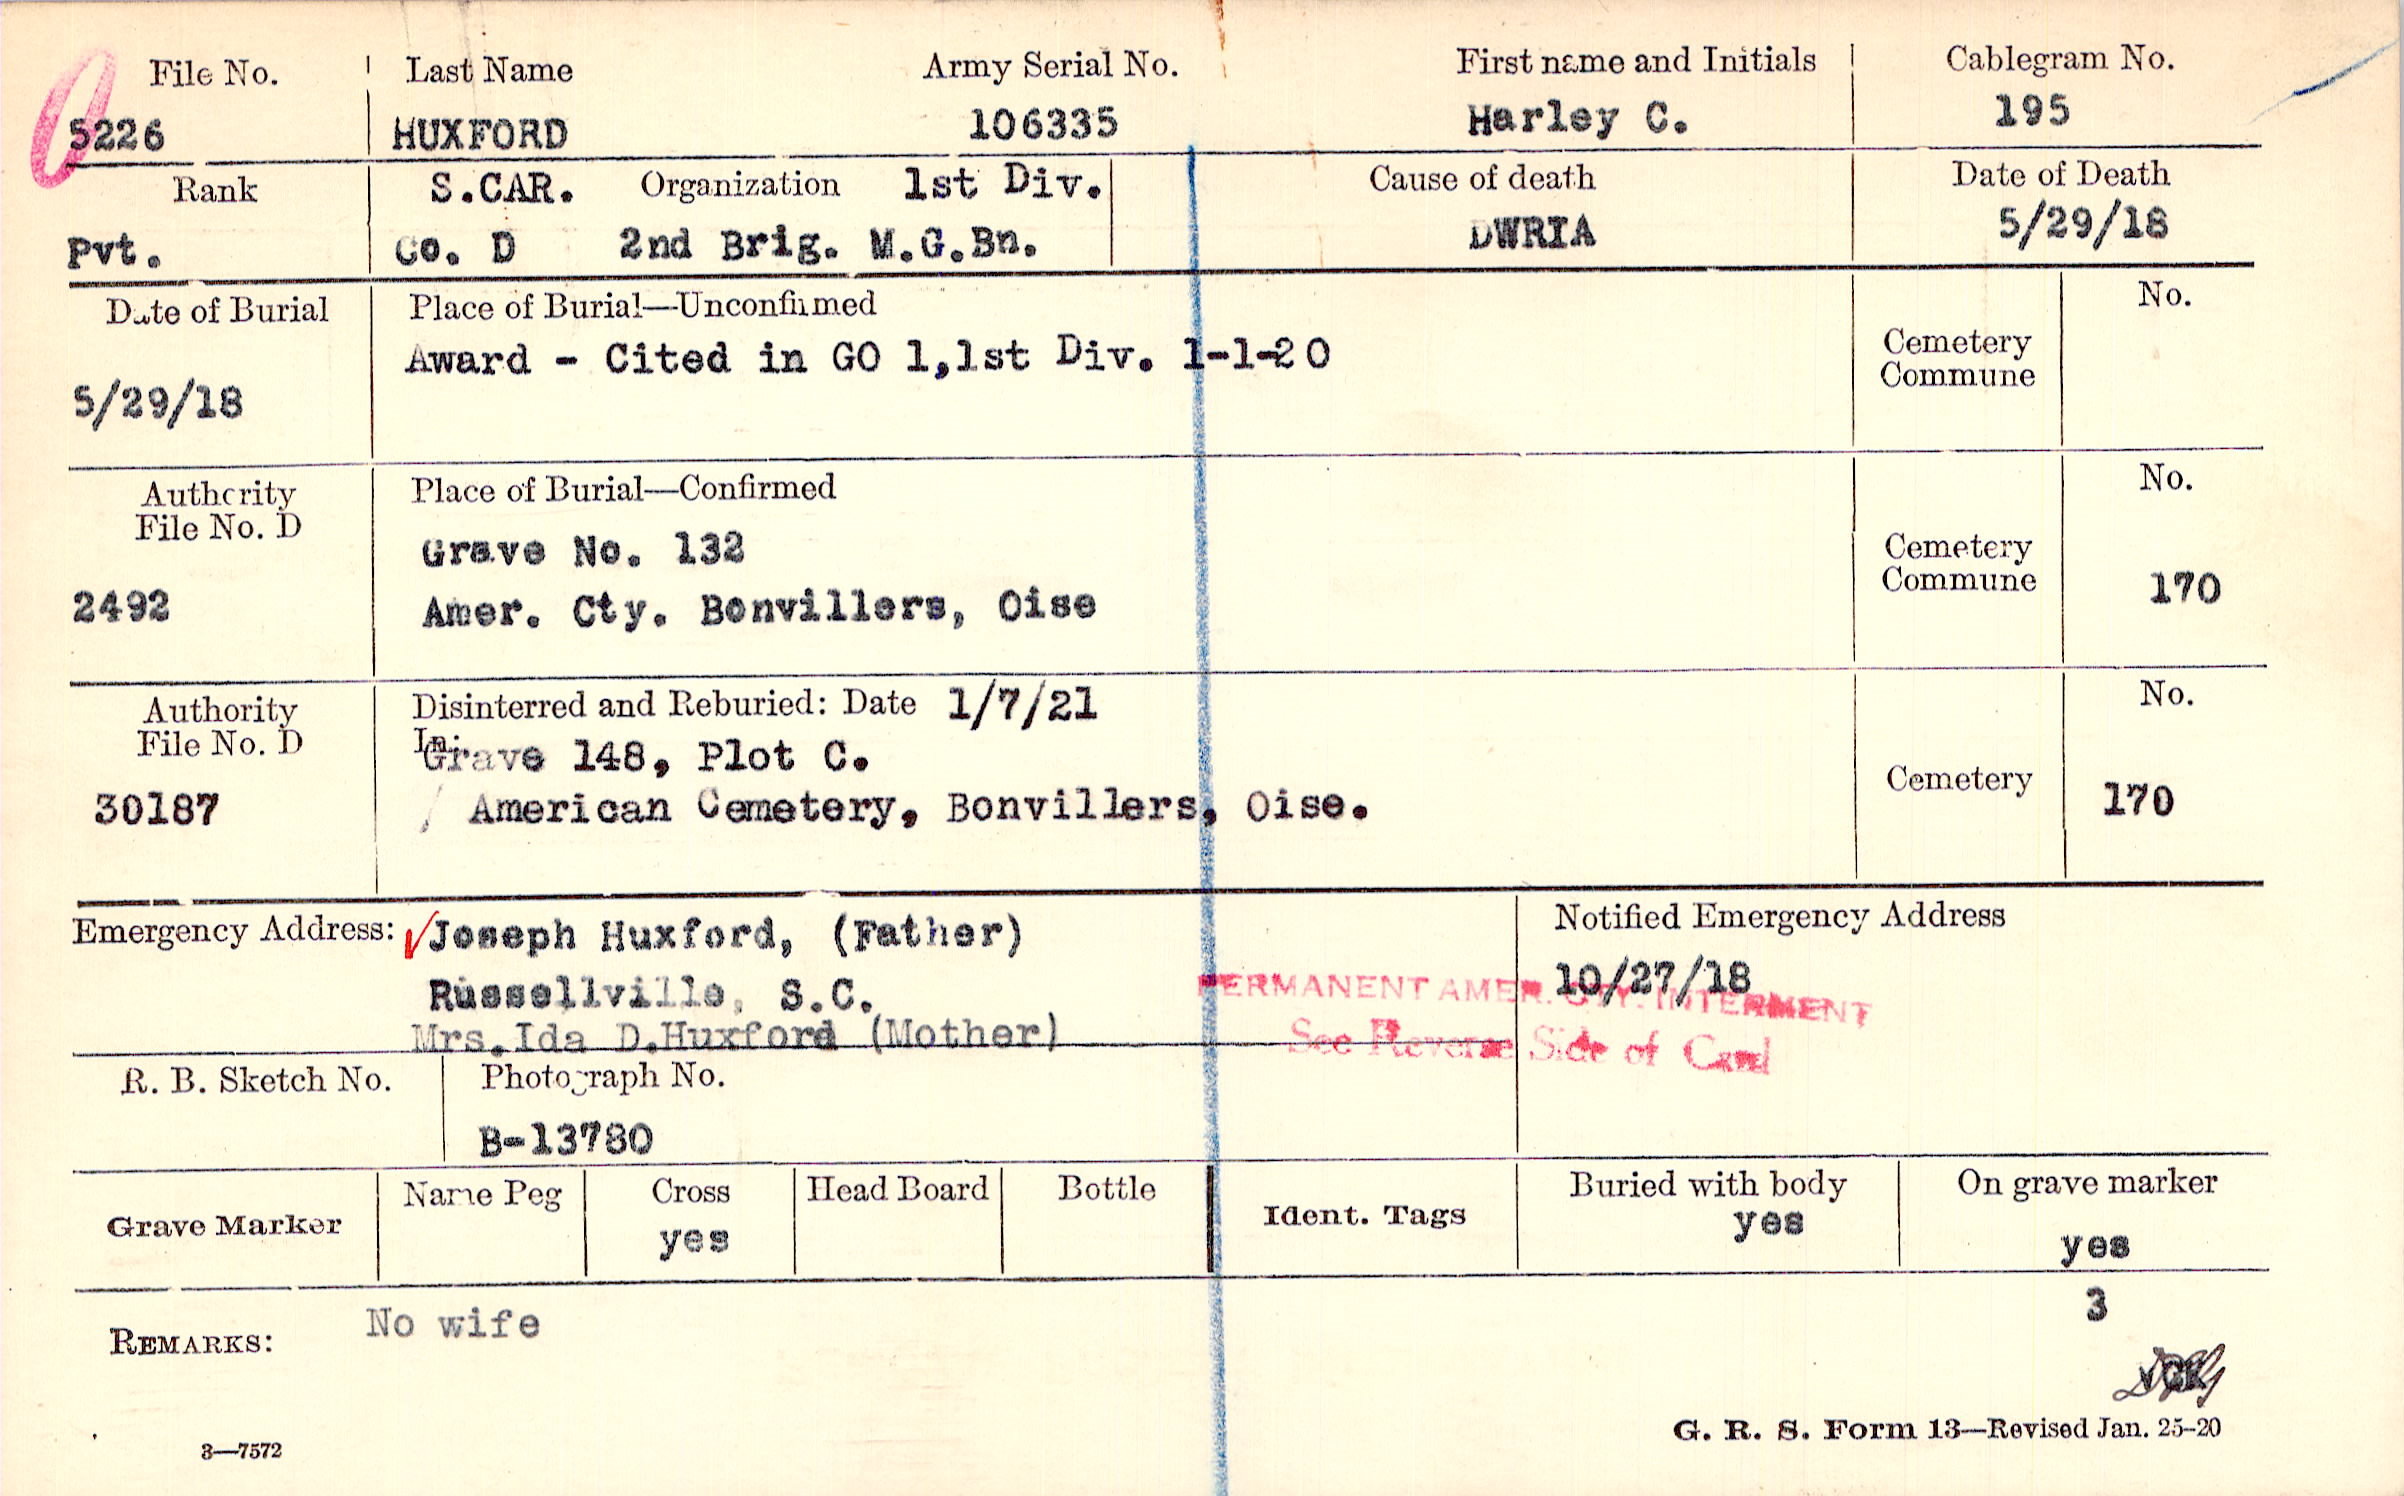 File No. Last Name Army Serial No. First name and Initials Cablegram No.
5226 HUXFORD 106335 Harley C. 195
Rank S.CAR. Organization 1st Div. Cause of death Date of Death
Pvt. Co. D 2nd Brig. M.G.Bn. DWRIA 5/29/18
Date of Burial Place of Burial—Unconfirmed No.
Award - Cited in GO 1,1st Div. 1-1-20
Cemetery
Commune
5/29/18
Authority Place of Burial—Confirmed No.
File No. D
Grave No. 132
Cemetery
Commune 170
2492 Amer. Cty. Bonvillers, Oise
Authority Disinterred and Reburied: Date 1/7/21 No.
File No. D In:
Grave 148, Plot C.
Cemetery 170
30187 American Cemetery, Bonvillers, Oise.
Emergency Address: Joseph Huxford, (Father) Notified Emergency Address
Russellville, S.C. 10/27/18
PERMANENT AMER. CTY. INTERMENT
Mrs.Ida D.Huxford (Mother)
See Reverse Side of Card
R. B. Sketch No. Photograph No.
B-13780
Grave Marker Name Peg Cross Head Board Bottle Ident. Tags Buried with body On grave marker
yes yes yes
3
REMARKS: No wife
G. R. S. Form 13—Revised Jan. 25-20
3—7572